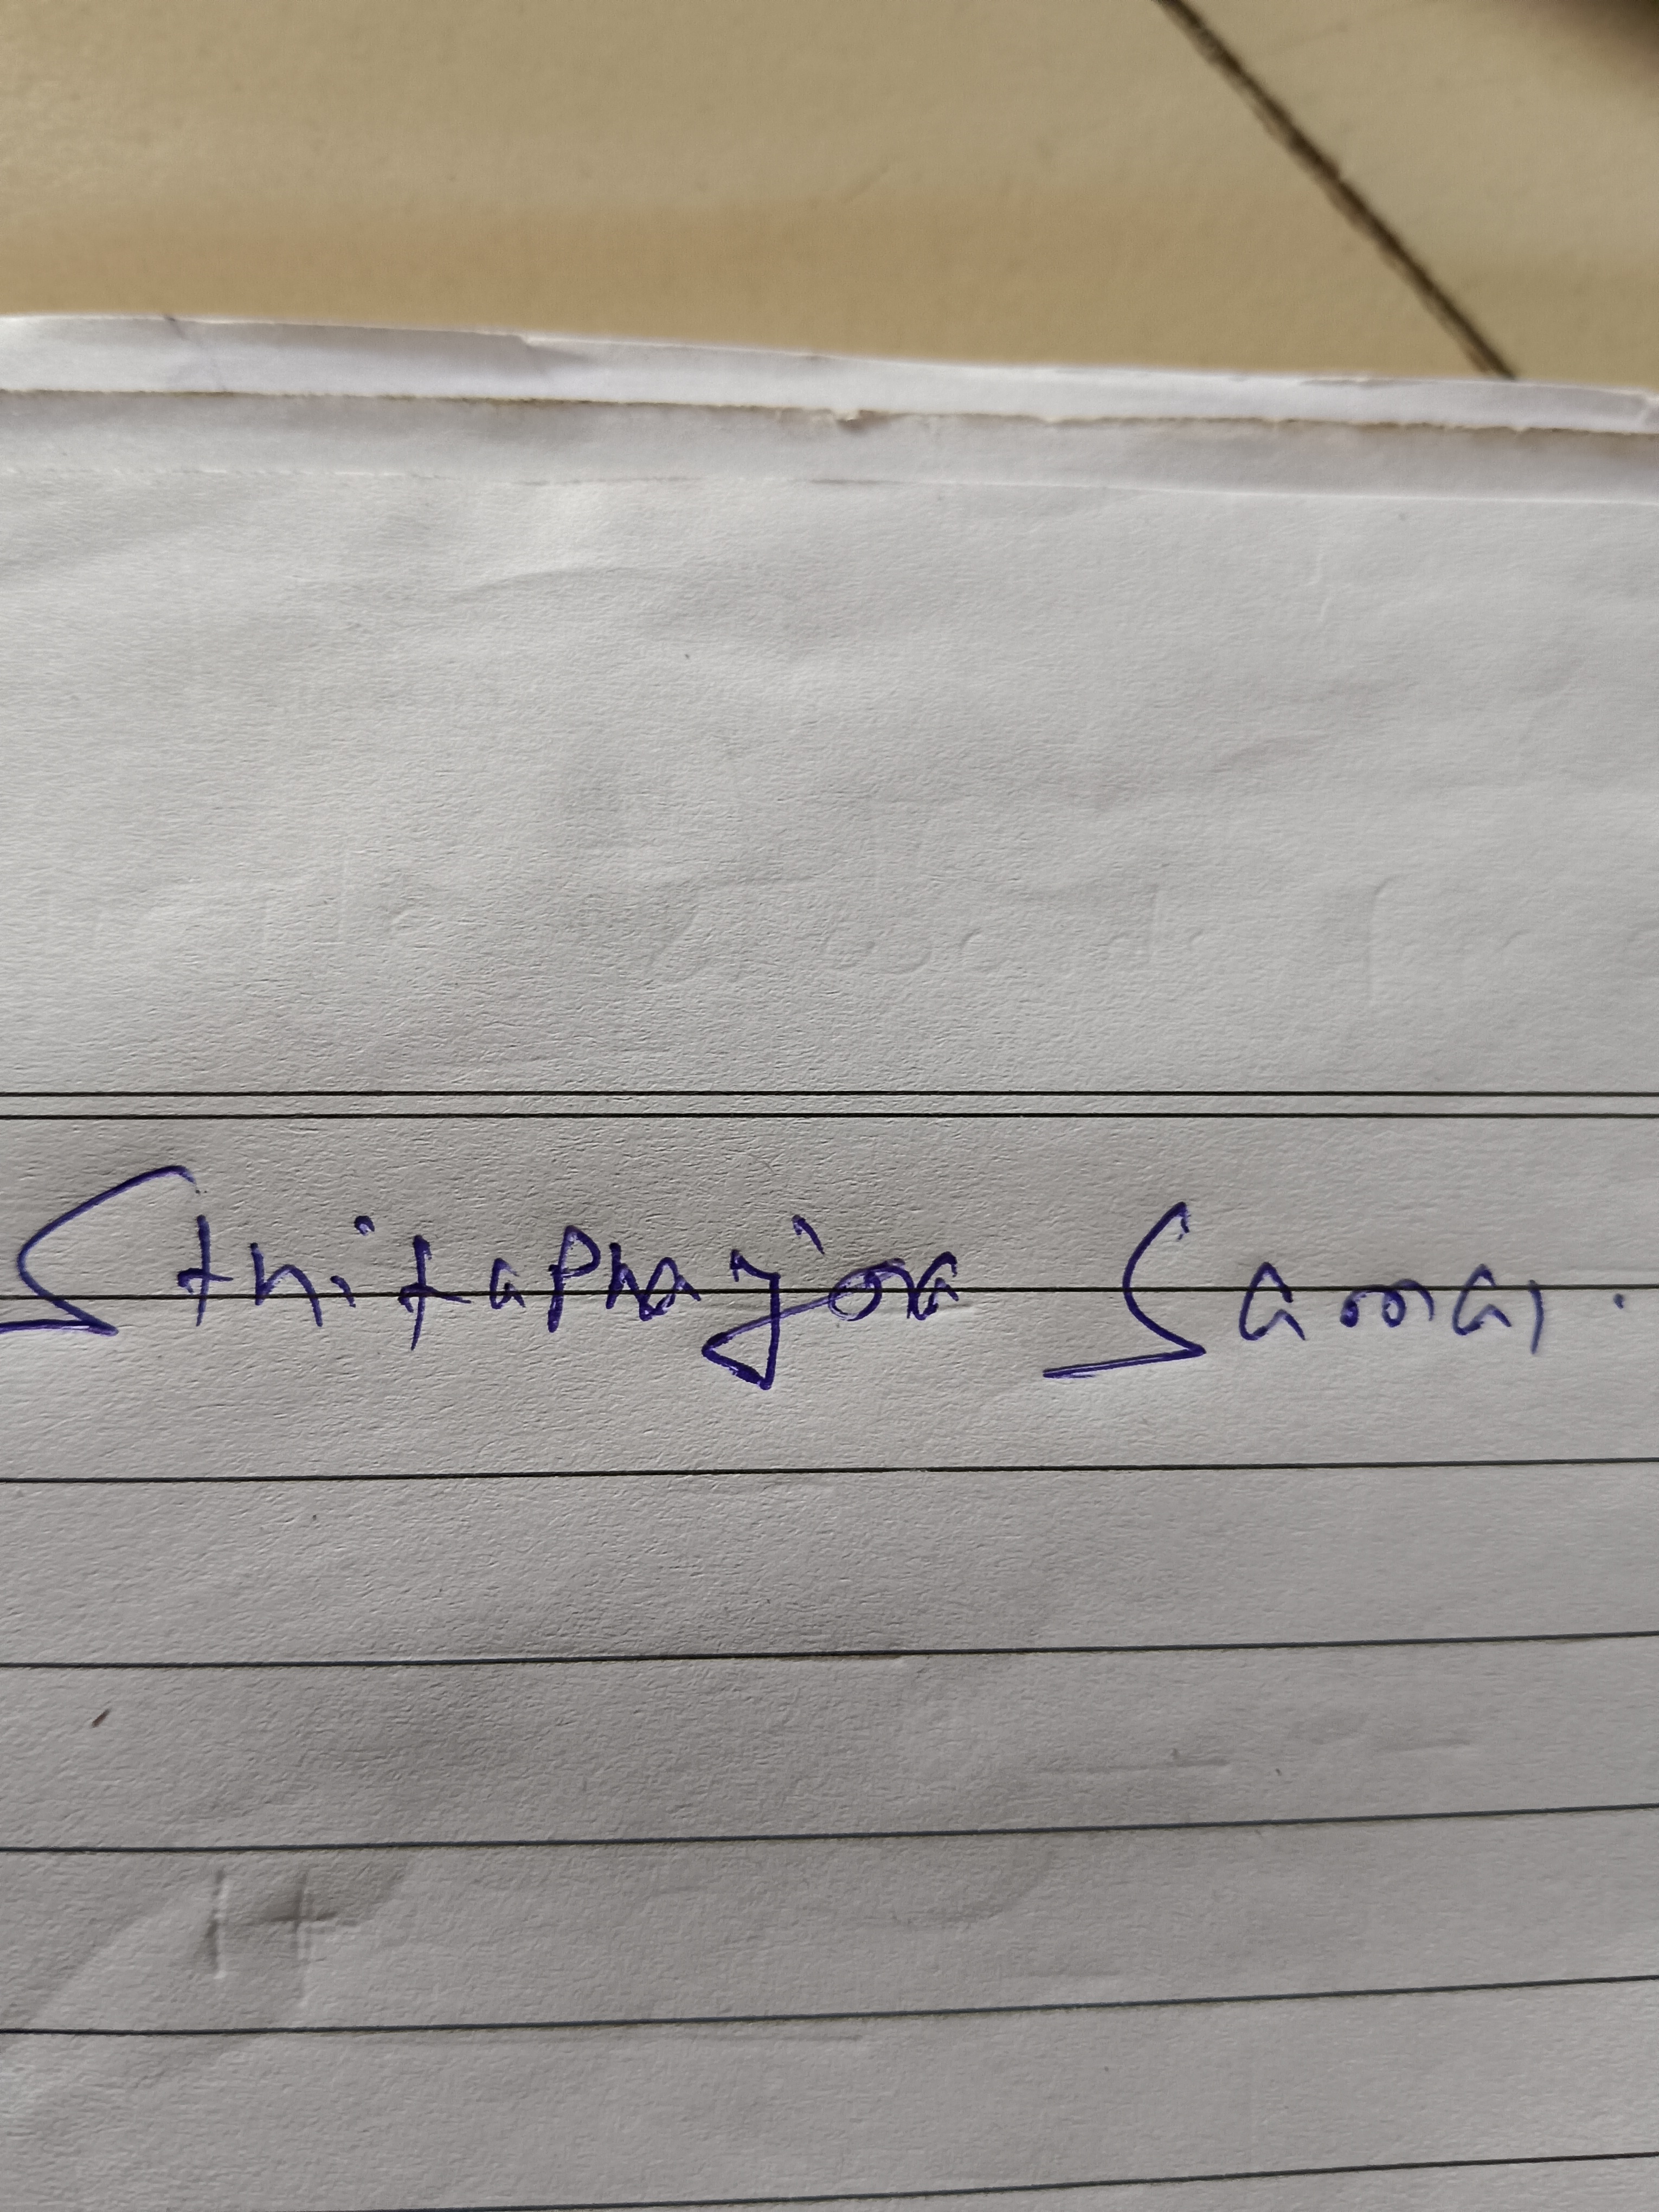 Sthitaprajna Samal.